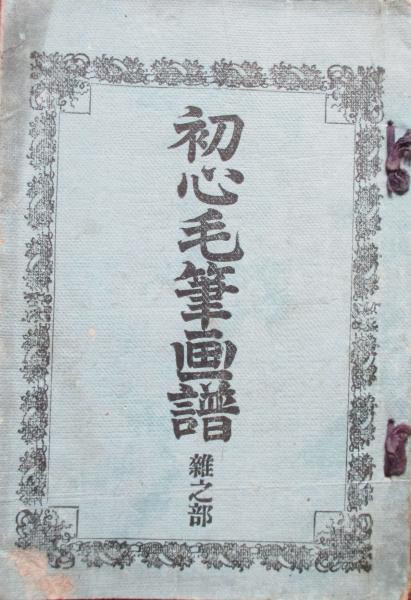 初心毛筆画譜
雜之部